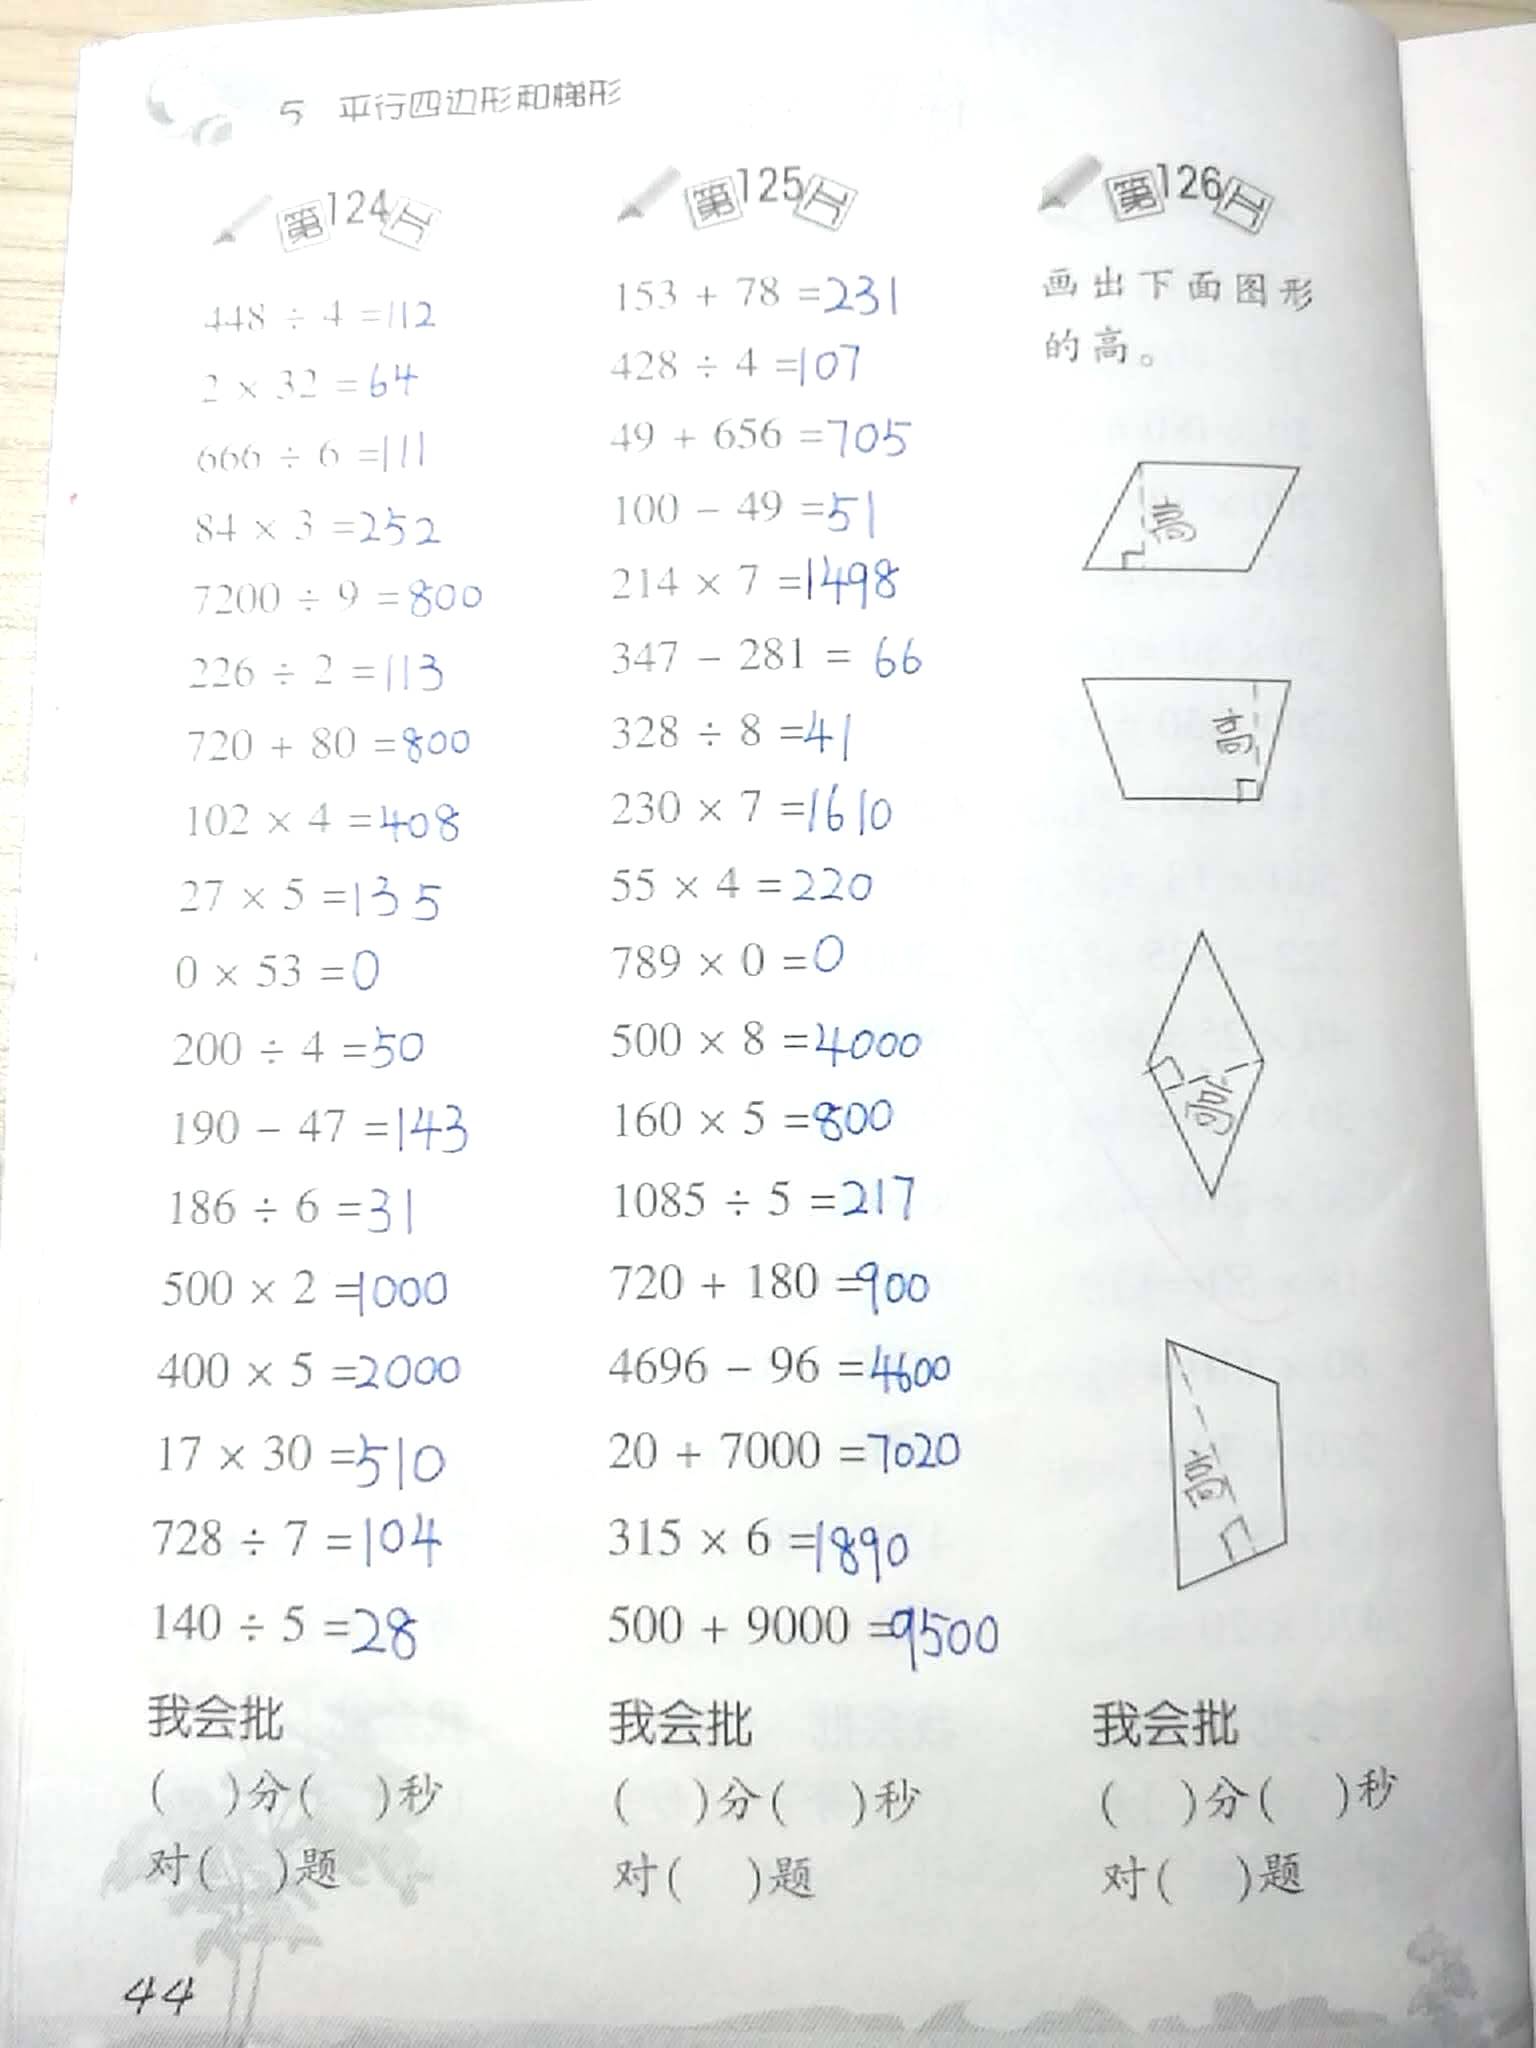 5 平行四边形和梯形
第124工
448 ÷ 4 =112
2 × 32 =64
666 ÷ 6 =111
84 × 3 =252
7200 ÷ 9 =800
226 ÷ 2 =113
720 + 80 =800
102 × 4 =408
27 × 5 =135
0 × 53 =0
200 ÷ 4 =50
190 − 47 =143
186 ÷ 6 =31
500 × 2 =1000
400 × 5 =2000
17 × 30 =510
728 ÷ 7 =104
140 ÷ 5 =28
我会批
( )分( )秒
对( )题
第125工
153 + 78 =231
428 ÷ 4 =107
49 + 656 =705
100 − 49 =51
214 × 7 =1498
347 − 281 = 66
328 ÷ 8 =41
230 × 7 =1610
55 × 4 =220
789 × 0 =0
500 × 8 =4000
160 × 5 =800
1085 ÷ 5 =217
720 + 180 =900
4696 − 96 =4600
20 + 7000 =7020
315 × 6 =1890
500 + 9000 =9500
我会批
( )分( )秒
对( )题
第126工
画出下面图形
的高。
高
高
高
高
我会批
( )分( )秒
对( )题
44